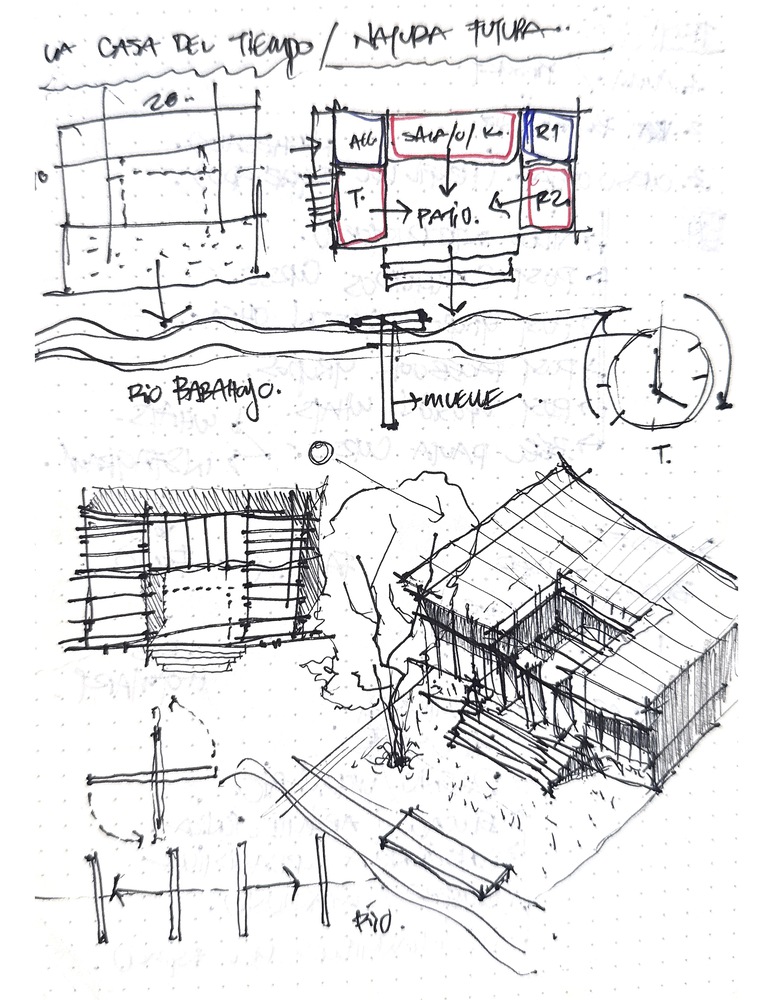 LA CASA DEL TIEMPO / NAYUDA FUTURA...
20.-
SALA/C/K.
R1
T.
PATIO.
R2.
RIO BABAHOYO.
MUELLE
T.
RÍO.